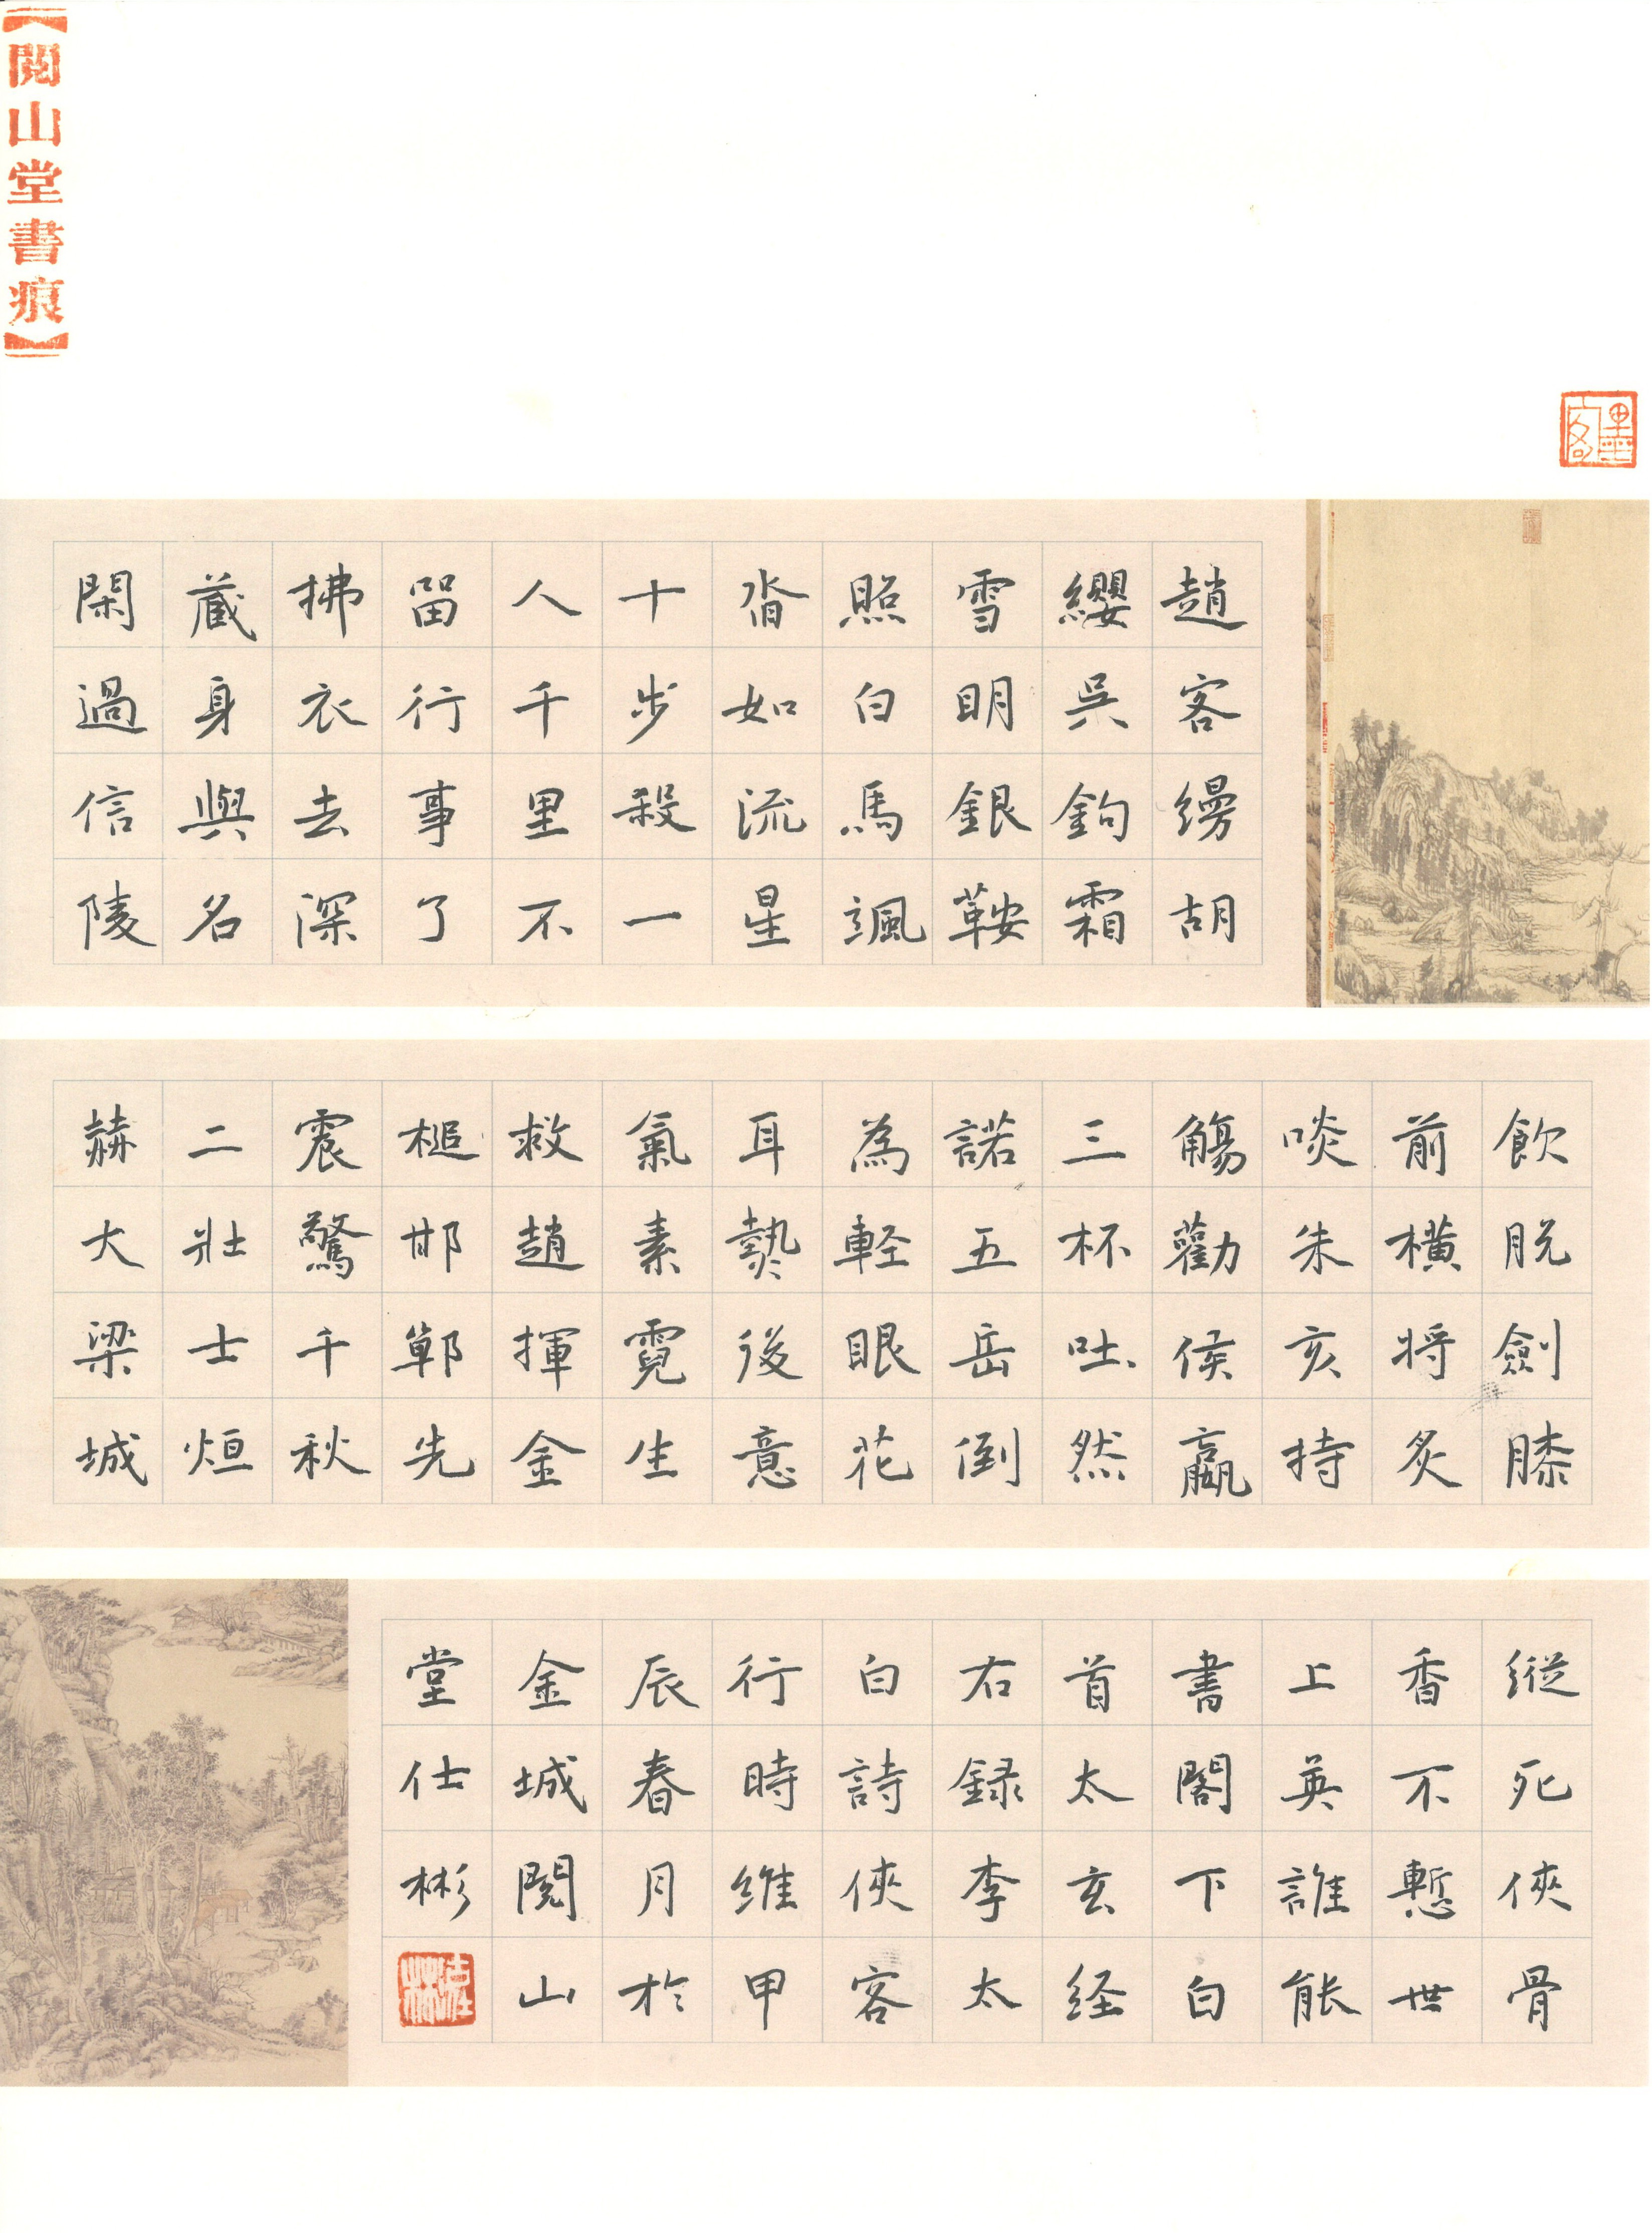 【閱山堂書痕】
趙客縵胡
纓吳鉤霜
雪眀銀鞍
照白馬颯
沓如流星
十步殺一
人千里不
留行事了
拂衣去深
藏身與名
閑過信陵
飲脱劍膝
前橫将炙
啖朱亥持
觴勸侯嬴
三杯吐然
諾五岳倒
為軽眼花
耳熱後意
氣素霓生
救趙揮金
槌邯鄲先
震驚千秋
二壯士烜
赫大梁城
縱死俠骨
香不慙世
上英誰能
書閣下白
首太玄経
右録李太
白詩俠客
行時維甲
辰春月於
金城閱山
堂仕彬